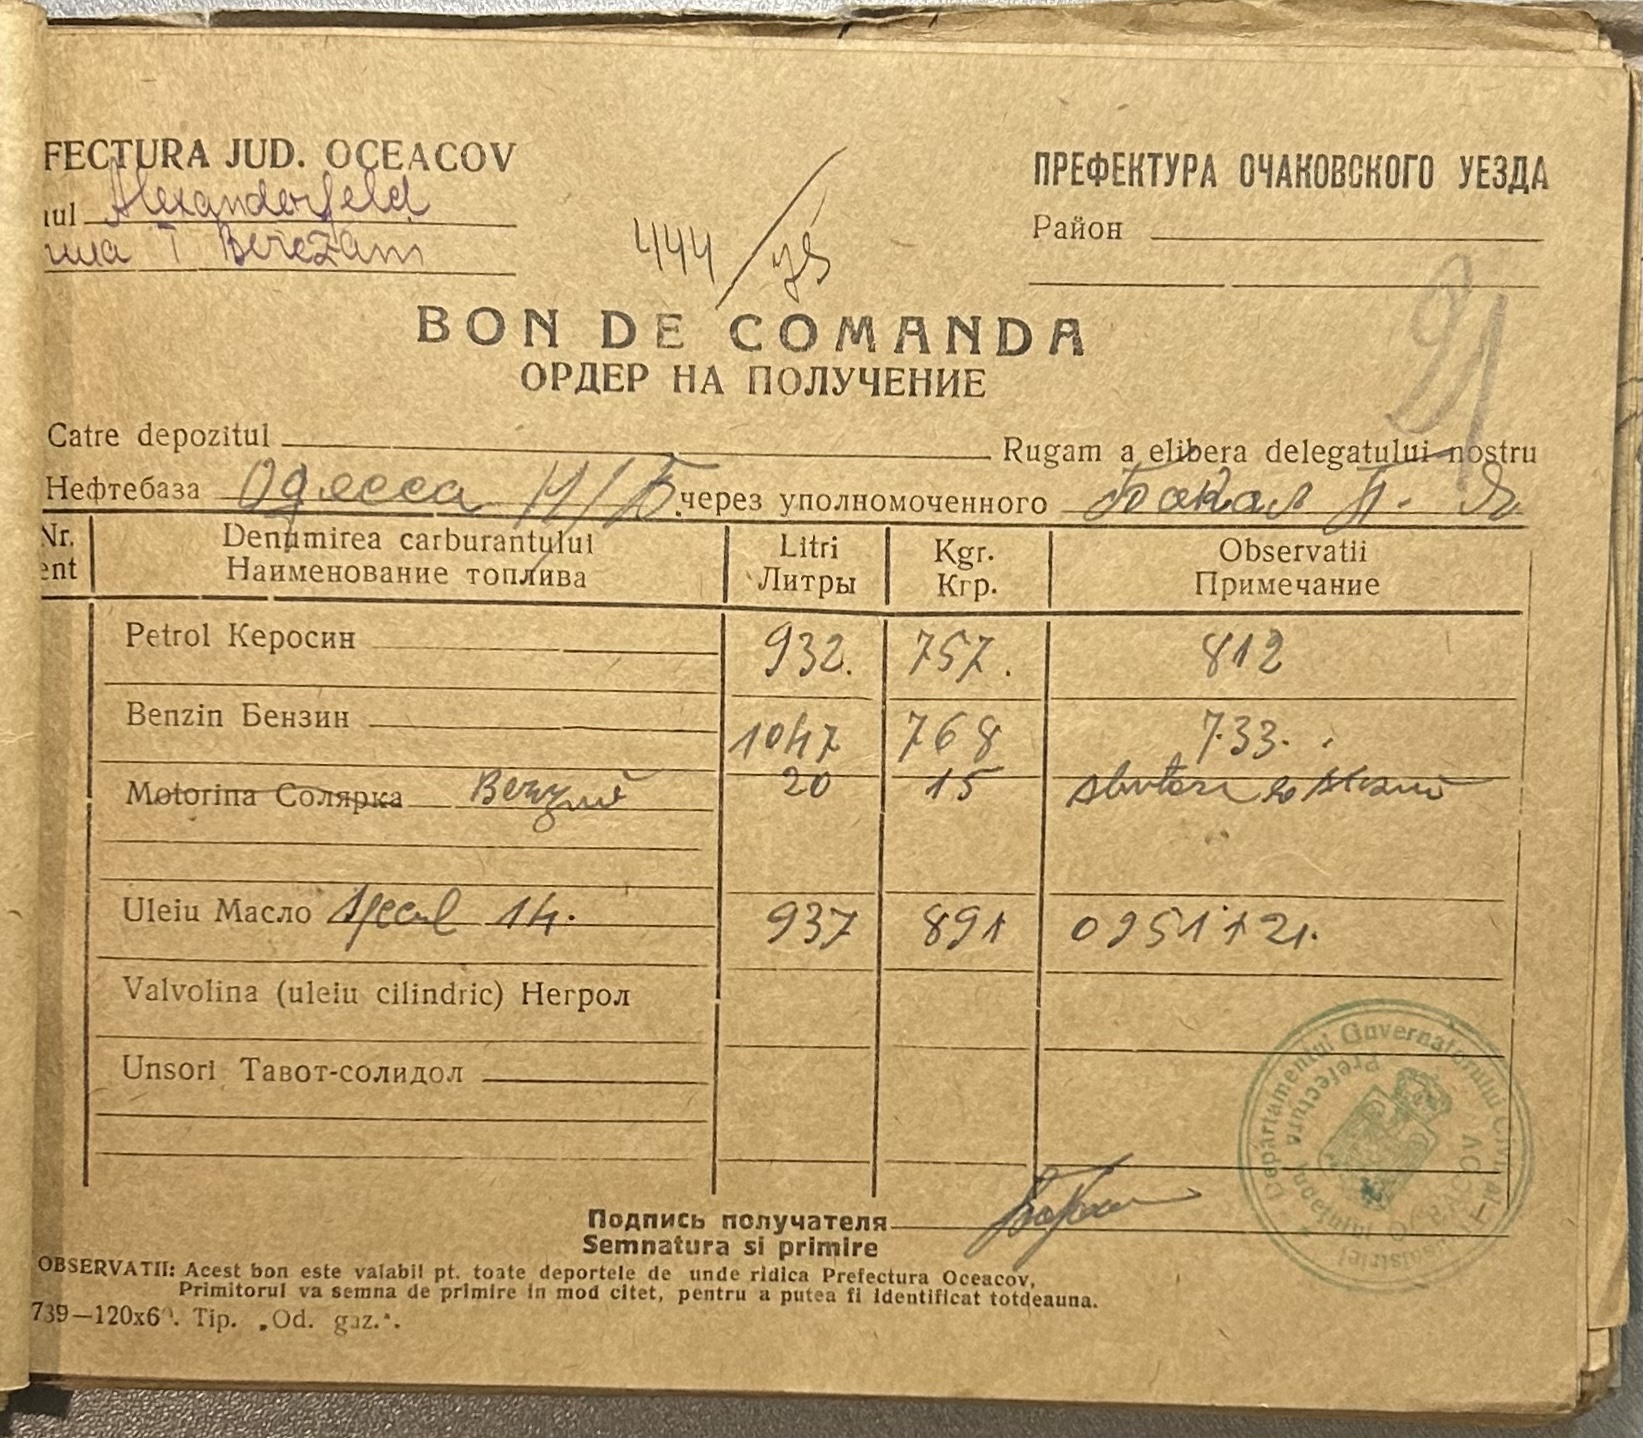 FECTURA JUD. OCEACOV
ПРЕФЕКТУРА ОЧАКОВСКОГО УЕЗДА
Alexanderfeld
Район
T Berezani
444/
21
BON DE COMANDA
ОРДЕР НА ПОЛУЧЕНИЕ
Catre depozitul Rugam a elibera delegatului nostru
Нефтебаза Одесса Н/Б. через уполномоченного Бокал П. Я
Nr. Denumirea carburantului Litri Kgr. Observatii
ent Наименование топлива Литры Кгр. Примечание
Petrol Керосин 932. 757. 812
Benzin Бензин 1047 768 733.
Motorina Солярка 20 15
Uleiu Масло 14. 937 891
Valvolina (uleiu cilindric) Негрол
Unsori Тавот-солидол
Departamentul Guvernatorului Civil al T
Prefectura Județean OCEACOV
Подпись получателя
Semnatura si primire
OBSERVATII: Acest bon este valabil pt. toate deportele de unde ridica Prefectura Oceacov,
Primitorul va semna de primire in mod citet, pentru a putea fi identificat totdeauna.
739—120x6 . Tip. „Od. gaz.“.